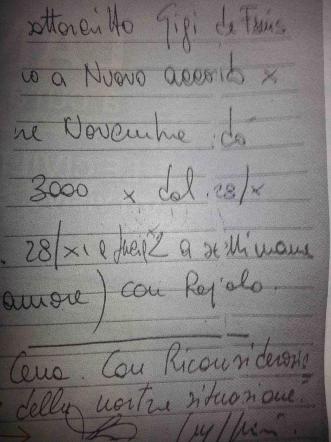 sottoscritto Gigi de
io a Nuovo accordo x
ne Novembre do
3000 x dal 28/x
28/xi e a settimana
amore) con Regalo.
Cena. Con Riconsiderazione
della nostra situazione.